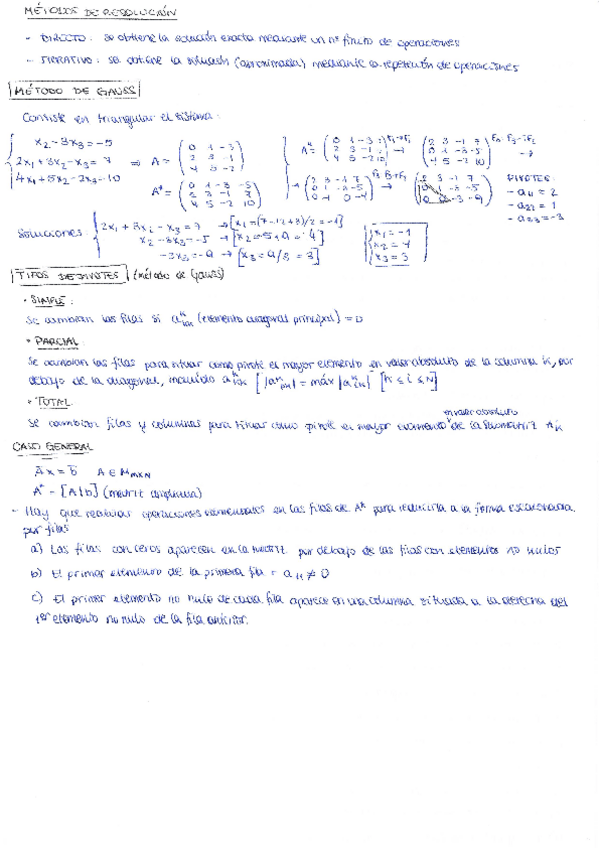 MÉTODOS DE RESOLUCIÓN
- DIRECTO: se obtiene la solución exacta mediante un nº finito de operaciones
- ITERATIVO: se obtiene la solución (aproximada) mediante la repetición de operaciones
MÉTODO DE GAUSS
Consiste en triangular el sistema:
x2 - 3x3 = -5
2x1 + 3x2 - x3 = 7 ⇒ A =
4x1 + 5x2 - 2x3 = 10
PIVOTES:
- a11 = 2
- a22 = 1
- a33 = -3
Soluciones: 2x1 + 3x2 - x3 = 7 → [x1 = (7-12+3)/2 = -1]
x1 = -1
x2 = 4
x3 = 3
TIPOS DE PIVOTES (método de Gauss)
• SIMPLE:
Se cambian las filas si (elemento diagonal principal) = 0
• PARCIAL:
Se cambian las filas para situar como pivote el mayor elemento en valor absoluto de la columna k, por
debajo de la diagonal, incluido [k ≤ i ≤ N]
• TOTAL
Se cambian filas y columnas para como pivote el mayor elemento en valor absoluto de la
CASO GENERAL
Ax = b A ∈ MmxN
A* = [A|b] (matriz ampliada)
- Hay que realizar operaciones elementales en las filas de A* para reducirla a la forma escalonada
por filas
a) Las filas con ceros aparecen en la matriz por debajo de las filas con elementos no nulos
b) El primer elemento de la primera fila = a11 ≠ 0
c) El primer elemento no nulo de cada fila aparece en una columna situada a la derecha del
1er elemento no nulo de la fila anterior.